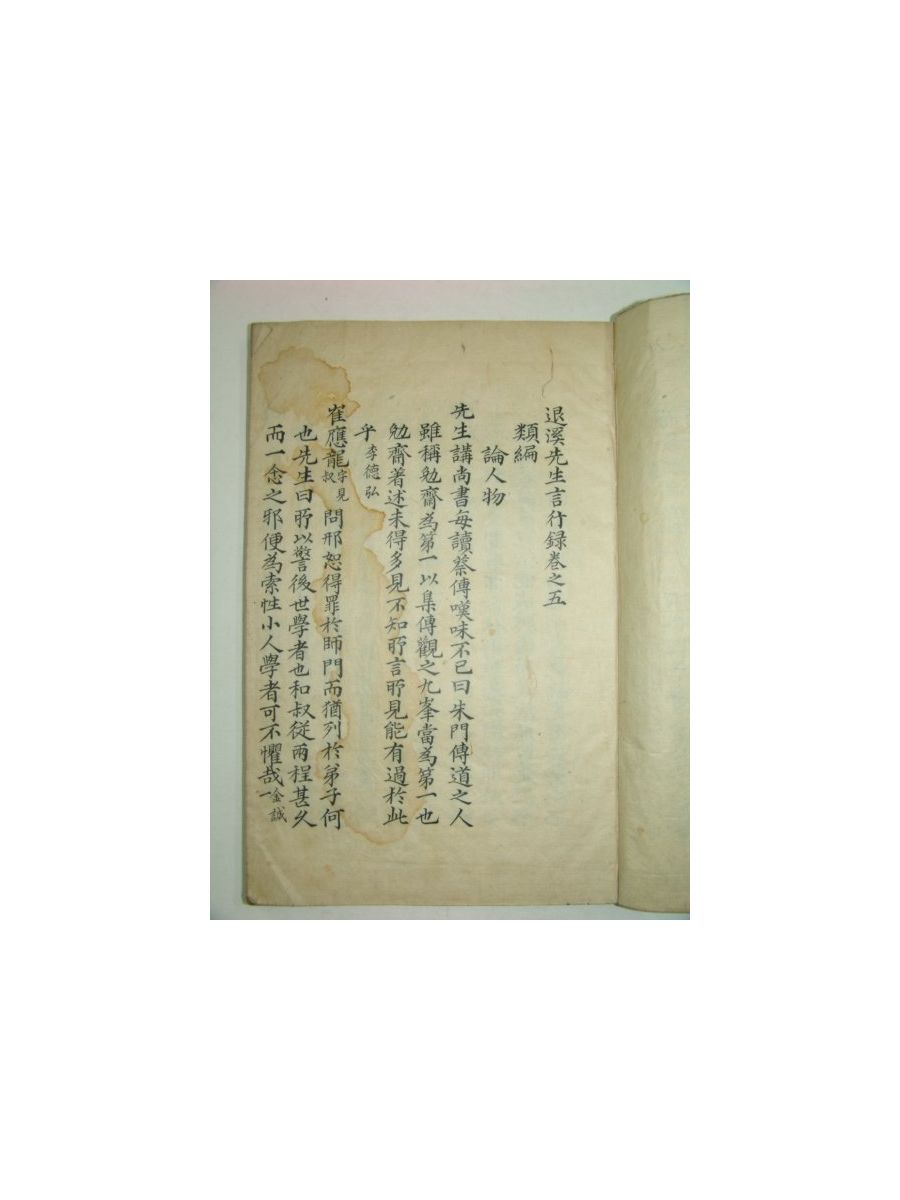 退溪先生言行録巻之五
類編
論人物
先生講尚書每讀蔡傳嘆味不已曰朱門傳道之人
雖稱勉齋為第一以集傳觀之九峯當為第一也
勉齋著述未得多見不知所言所見能有過於此
乎李德弘
崔應龍字見叔問邢恕得罪於師門而猶列於弟子何
也先生曰所以警後世學者也和叔従兩程甚久
而一念之邪便為索性小人學者可不懼哉金誠一